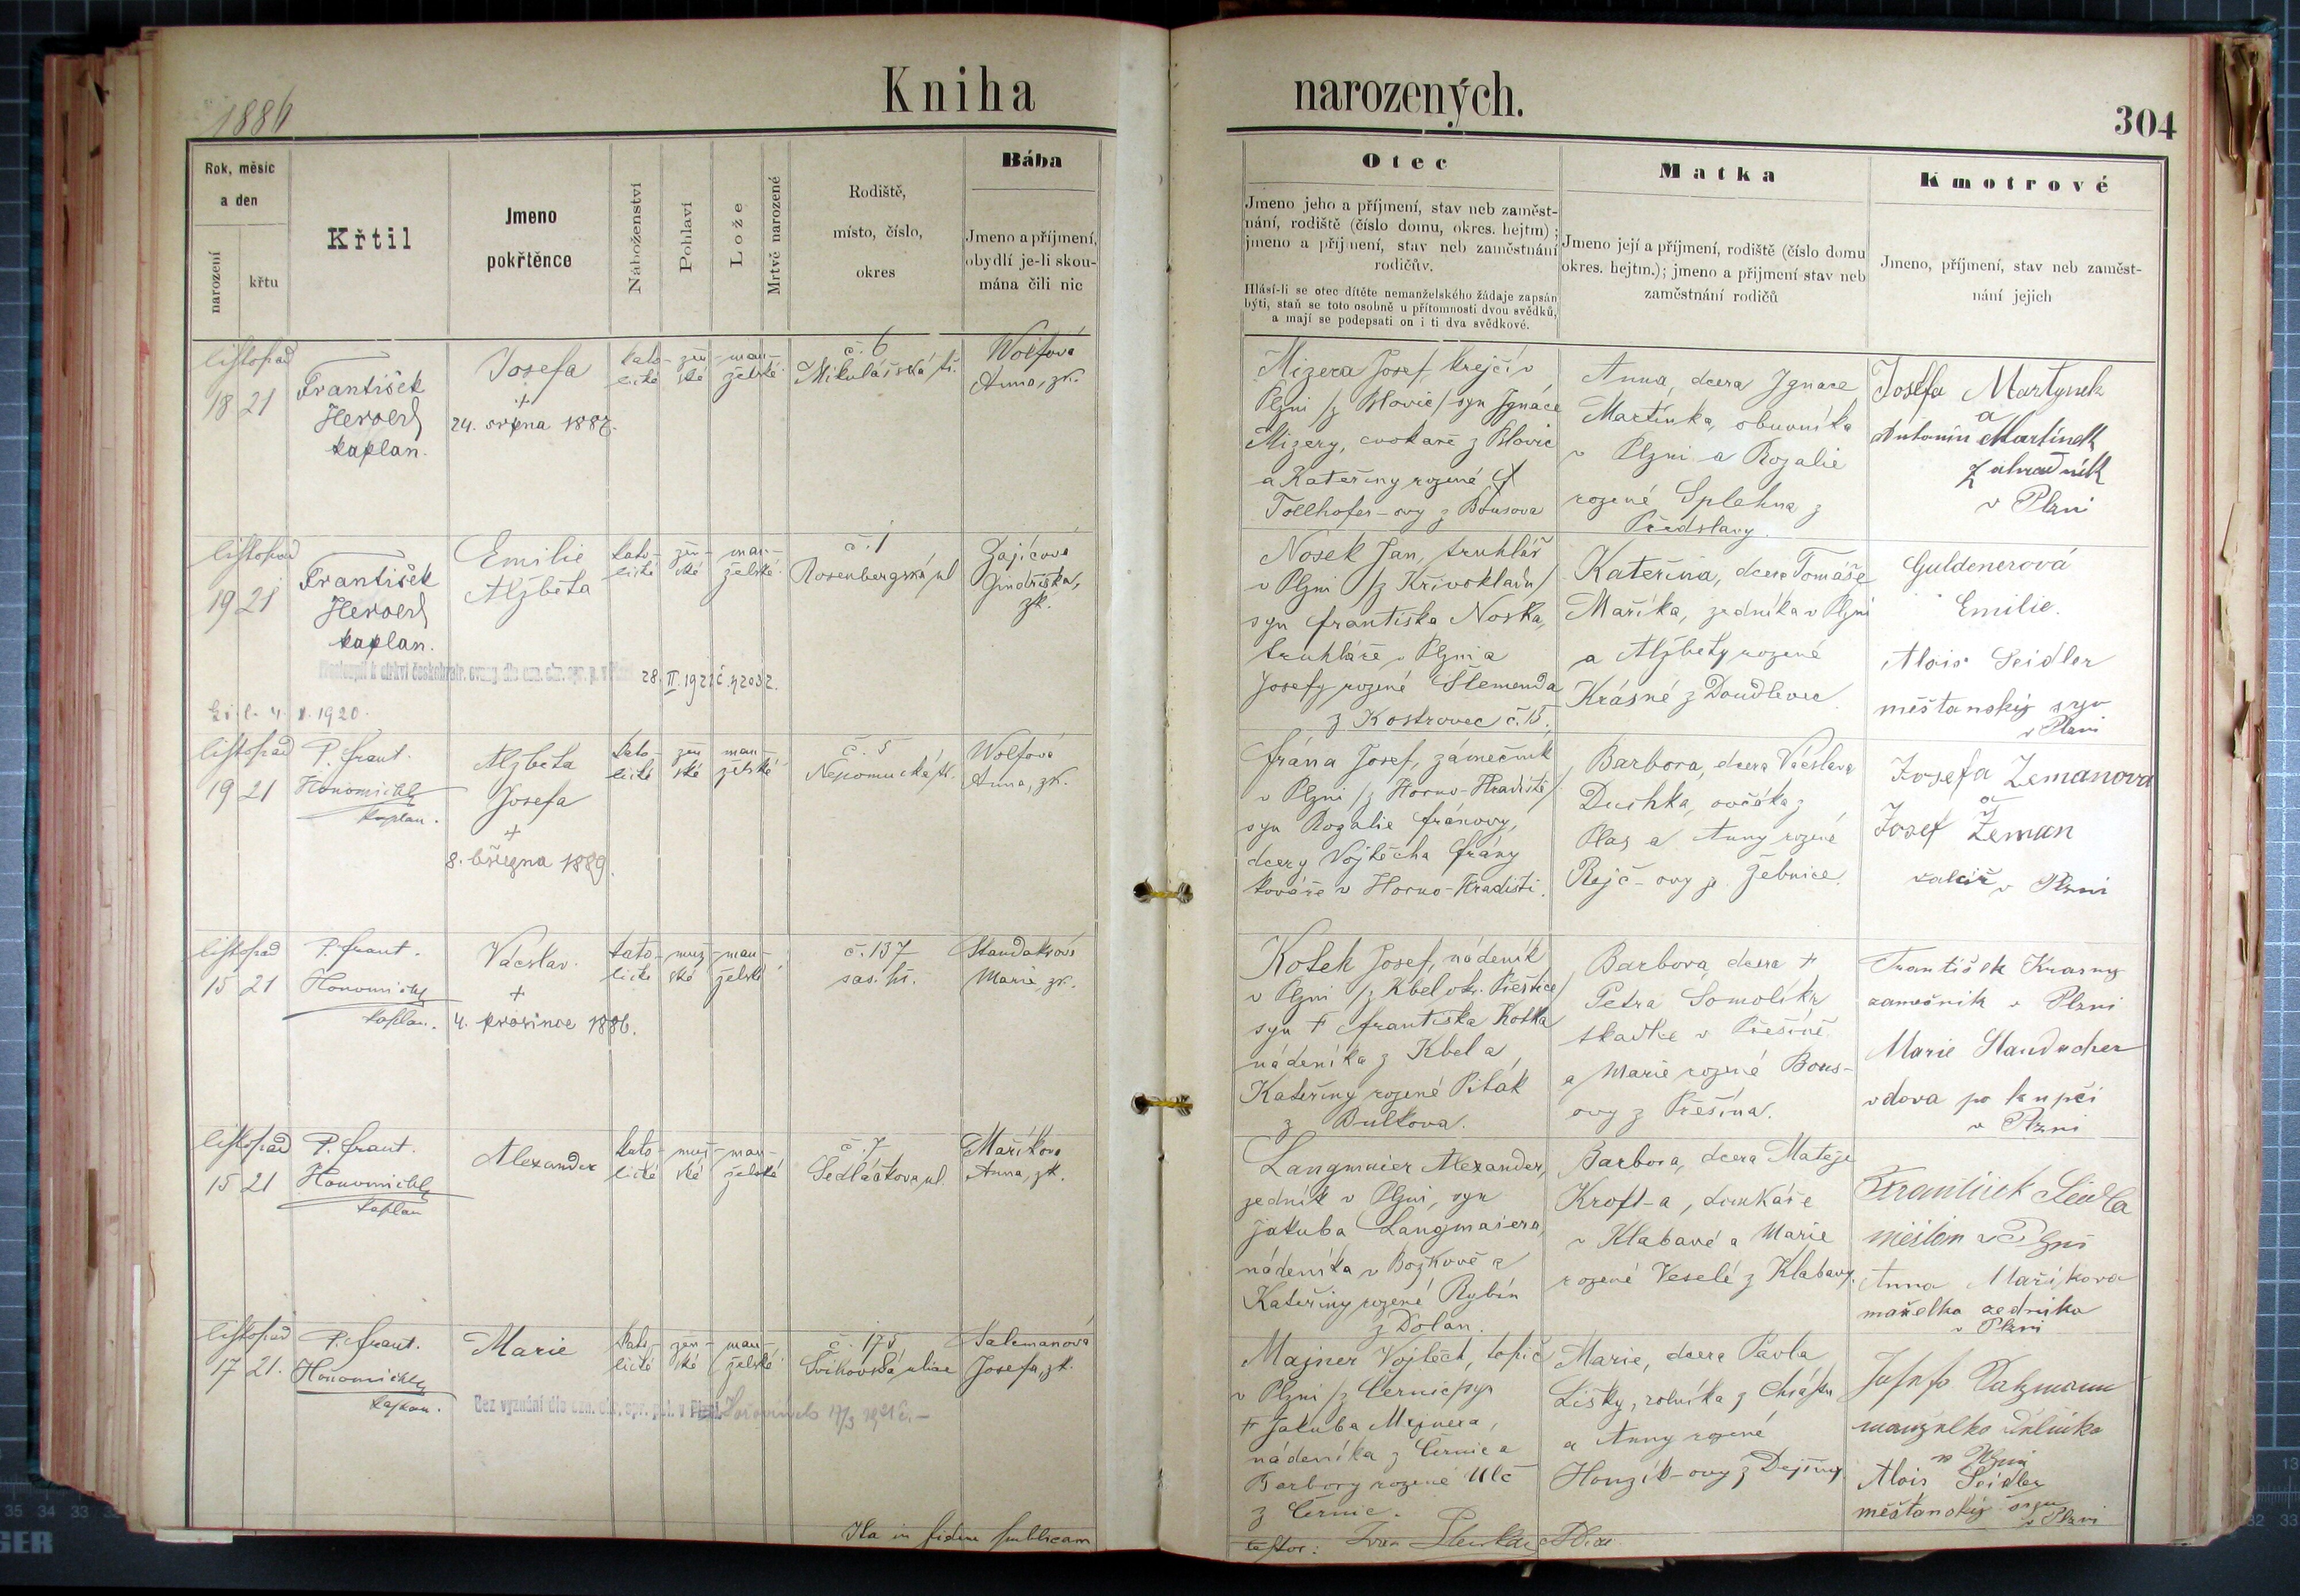 1886
Kniha
narozených.
304
Rok, měsíc
a den
narození
křtu
Křtil
Jmeno
pokřtěnce
Náboženství
Pohlaví
Lože
Mrtvě narozené
Rodiště,
místo, číslo,
okres
Bába
Jmeno a příjmení,
obydlí je-li skou-
mána čili nic
Otec
Jmeno jeho a příjmení, stav neb zaměst-
nání, rodiště (číslo domu, okres. hejtm) ;
jmeno a příjmení, stav neb zaměstnání
rodičův.
Hlásí-li se otec dítěte nemanželského žádaje zapsán
býti, staň se toto osobně u přítomnosti dvou svědků,
a mají se podepsati on i ti dva svědkové.
Matka
Jmeno její a příjmení, rodiště (číslo domu
okres. hejtm.); jmeno a přijmení stav neb
zaměstnání rodičů
Kmotrové
Jmeno, příjmení, stav neb zaměst-
nání jejich
listopad
18 21
František
Heroerl
kaplan.
Josefa
+
24. srpna 1887.
kato- žen- man-
lické ské želské
č. 6
Mikulášská tř.
Wolfová
Anna, zk.
Mizera Josef, krejčí v
Plzni /z Blovic/ syn Ignáce
Mizery, cvokaře z Blovic
a Kateřiny rozené
Tollhofer-ovy z
Anna, dcera Ignace
Martínka, obuvníka
v Plzni a Rozalie
rozené Splehna z
Předslavy.
Josefa Martynek
a
Antonín Martínek
Zahradník
v Plzni
listopad
19 21
František
Heroerl
kaplan.
Emilie
Alžběta
kato- žen- man-
lické ské želské
č. 1
Rosenbergská ul
Zajícová
Jindřiška,
zk.
28. II. 1921
1920.
Nosek Jan, truhlář
v Plzni /z Křivokladu/
syn Františka Noska,
truhláře v Plzni a
Josefy rozené Slemenda
z Kostrovec č. 15.
Kateřina, dcera Tomáše
Maříka, zedníka v Plzni
a Alžběty rozené
Krásné z Doudlevec
Guldenerová
Emilie.
Alois Seidler
měštanský syn
v Plzni
listopad
19 21
P. Frant.
Honomichl
kaplan.
Alžběta
Josefa
+
8. března 1889.
kato- žen- man-
lické ské želské
č. 5
Nepomucká tř.
Wolfová
Anna, zk.
Frána Josef, zámečník
v Plzni /z Horno-Hradiště/
syn Rozalie Fránovy,
dcery Vojtěcha Frány
kováře v Horno-Hradišti.
Barbora, dcera Václava
Duchka, ovčáka z
Plas a Anny rozené
Rejč-ovy z Žebnice.
Josefa Zemanova
a
Josef Zeman
v Plzni
listopad
15 21
P. Frant.
Honomichl
kaplan.
Václav.
+
4. prosince 1886.
kato- muž- man-
lické ské želské
č. 137
sas. př.
Marie, zk.
Kotek Josef, nádeník
v Plzni /z Kbel okr. Přeštice/
syn + Františka Kotka
nádeníka z Kbel a
Kateřiny rozené Piták
z Bulkova.
Barbora, dcera +
Petra Somolíka
v Přešíně
a Marie rozené Bous-
ovy z Přešína.
František Krasny
zamečnik v Plzni
Marie Staudacher
vdova po kupči
v Plzni
listopad
15 21
P. Frant.
Honomichl
kaplan
Alexander
kato- muž- man-
lické ské želské
č. 7
Sedláčkova ul.
Maříkova
Anna, zk.
Langmaier Alexander,
zedník v Plzni, syn
Jakuba Langmaiera,
nádeníka v Božkově a
Kateřiny rozené Rybín
z Dolan.
Barbora, dcera Matěje
Kroft-a, domkáře
v Klabavě a Marie
rozené Veselé z Klabavy.
František Seidler
Anna Maříkova
manželka zedníka
v Plzni
listopad
17 21.
P. Frant.
Honomichl
kaplan.
Marie
kato- žen- man-
lické ské želské
č. 175
Čvikovská ulice
Salcmanová
Josefa, zk.
Bez vyznání dle ozn. okr. spr. pol. v
Majner Vojtěch, topič
v Plzni /z Černic/ syn
+ Jakuba Majnera,
nádeníka z Černic a
Barbory rozené Ulč
z Černic.
Marie, dcera Pavla
Lišky, rolníka z Chrástu
a Anny rozené
Honzík-ovy z Dejšiny
Josefa Salzmann
v Plzni
Alois Seidler
měštanský syn
v Plzni
Ita in fidem publicam
testor: